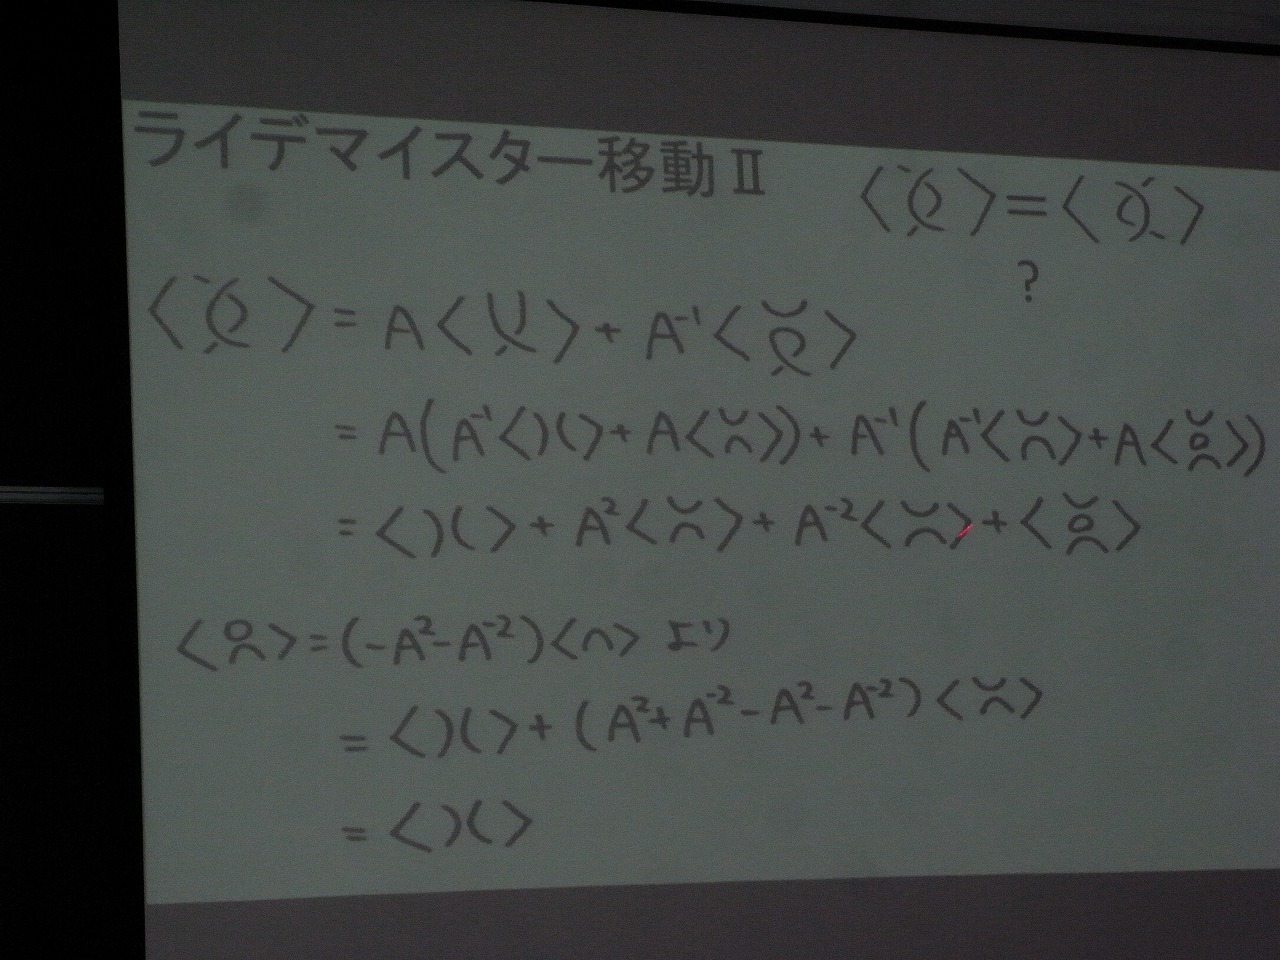 ライデマイスター移動 Ⅱ
⟨ ⟩ = ⟨ ⟩
?
⟨ ⟩ = A⟨ ⟩ + A⁻¹⟨ ⟩
= A(A⁻¹⟨)(⟩ + A⟨ ⟩) + A⁻¹(A⁻¹⟨ ⟩ + A⟨ ⟩)
= ⟨)(⟩ + A²⟨ ⟩ + A⁻²⟨ ⟩ + ⟨ ⟩
⟨ ⟩ = (-A²-A⁻²)⟨∩⟩ より
= ⟨)(⟩ + (A²+A⁻²-A²-A⁻²)⟨ ⟩
= ⟨)(⟩